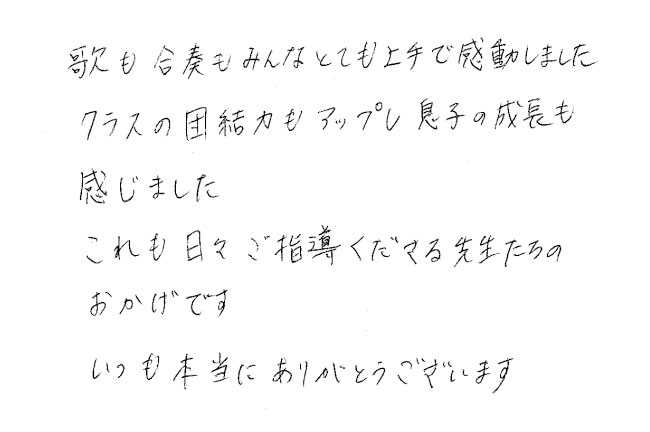 歌も合奏もみんなとても上手で感動しました
クラスの団結力もアップし息子の成長も
感じました
これも日々ご指導くださる先生たちの
おかげです
いつも本当にありがとうございます